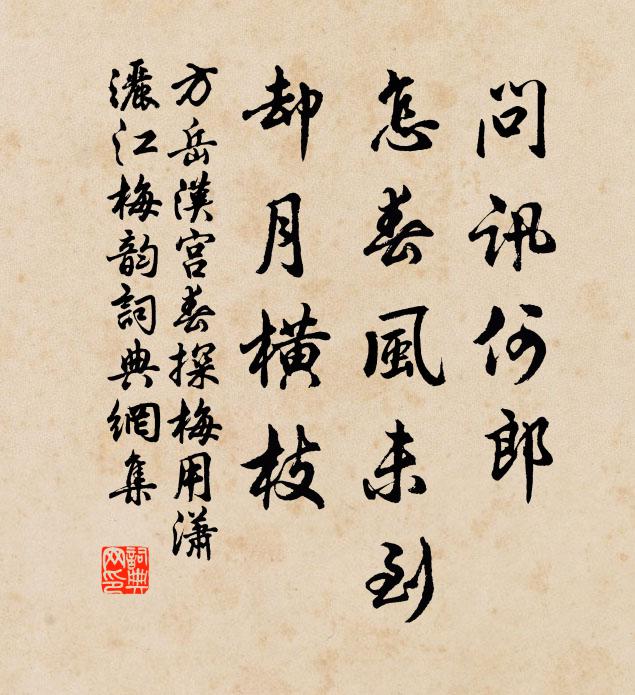 問訊何郎
怎春風未到
却月橫枝
方岳漢宮春探梅用瀟
灑江梅韵詞典網集
詞典
网印